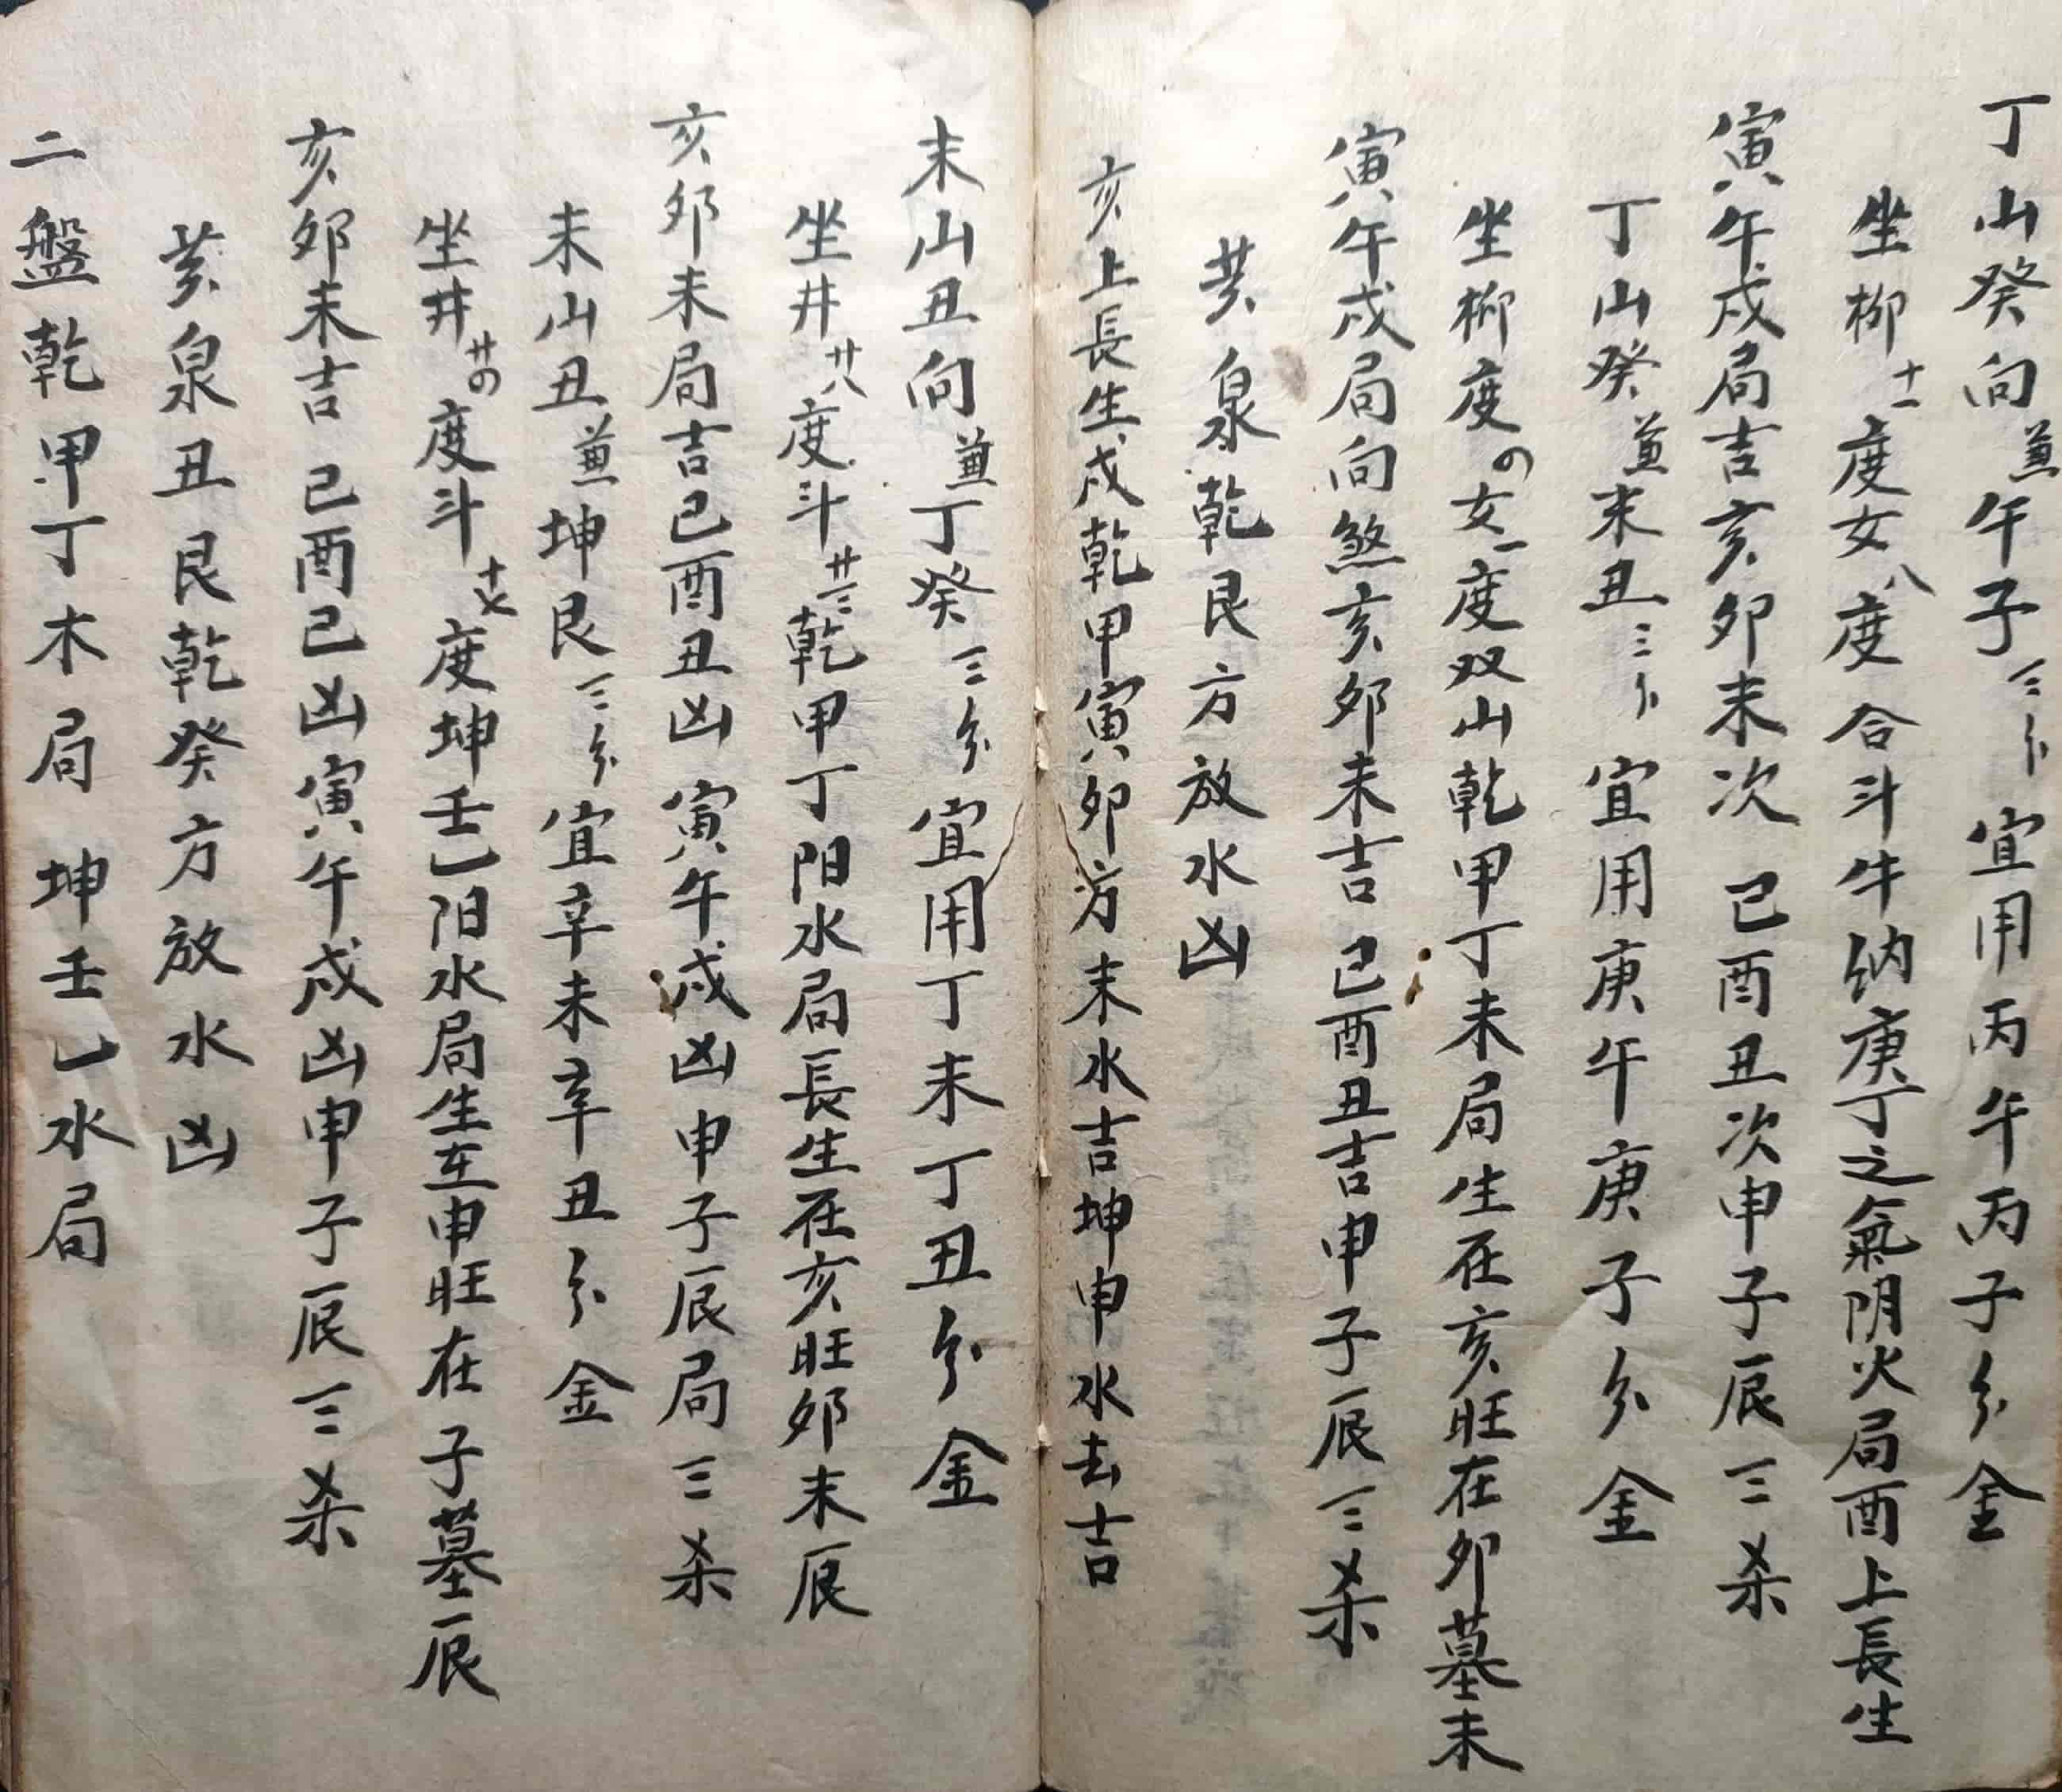 丁山癸向兼午子三分宜用丙午丙子分金
坐柳十一度女八度合斗牛纳庚丁之氣阴火局酉上長生
寅午戌局吉亥卯未次巳酉丑次申子辰三杀
丁山癸兼未丑三分宜用庚午庚子分金
坐柳度の女一度双山乾甲丁未局生在亥旺在卯墓未
寅午戌局向煞亥卯未吉巳酉丑吉申子辰三杀
黄泉乾艮方放水凶
亥上長生戌乾甲寅卯方未水吉坤申水去吉
未山丑向兼丁癸三分宜用丁未丁丑分金
坐井廿八度斗廿三乾甲丁阳水局長生在亥旺卯未辰
亥卯未局吉巳酉丑凶寅午戌凶申子辰局三杀
未山丑兼坤艮三分宜辛未辛丑分金
坐井廿の度斗十七度坤壬乙阳水局生在申旺在子墓辰
亥卯未吉巳酉巳凶寅午戌凶申子辰三杀
黄泉丑艮乾癸方放水凶
二盤乾甲丁木局坤壬乙水局